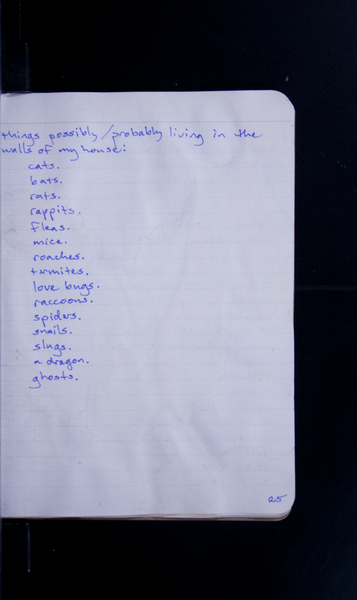 things possibly/probably living in the
walls of my house:
cats.
bats.
rats.
rappits.
fleas.
mice.
roaches.
termites.
love bugs.
raccoons.
spiders.
snails.
slugs.
a dragon.
ghosts.
25